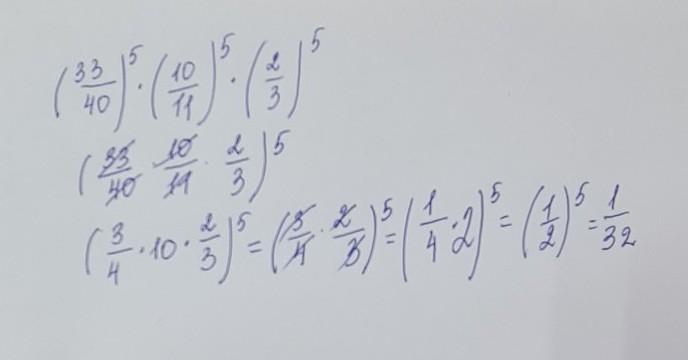 (33/40)^5 · (10/11)^5 · (2/3)^5
(33/40 · 10/11 · 2/3)^5
(3/4 · 10 · 2/3)^5 = (3/4 · 2/3)^5 = (1/4 · 2)^5 = (1/2)^5 = 1/32